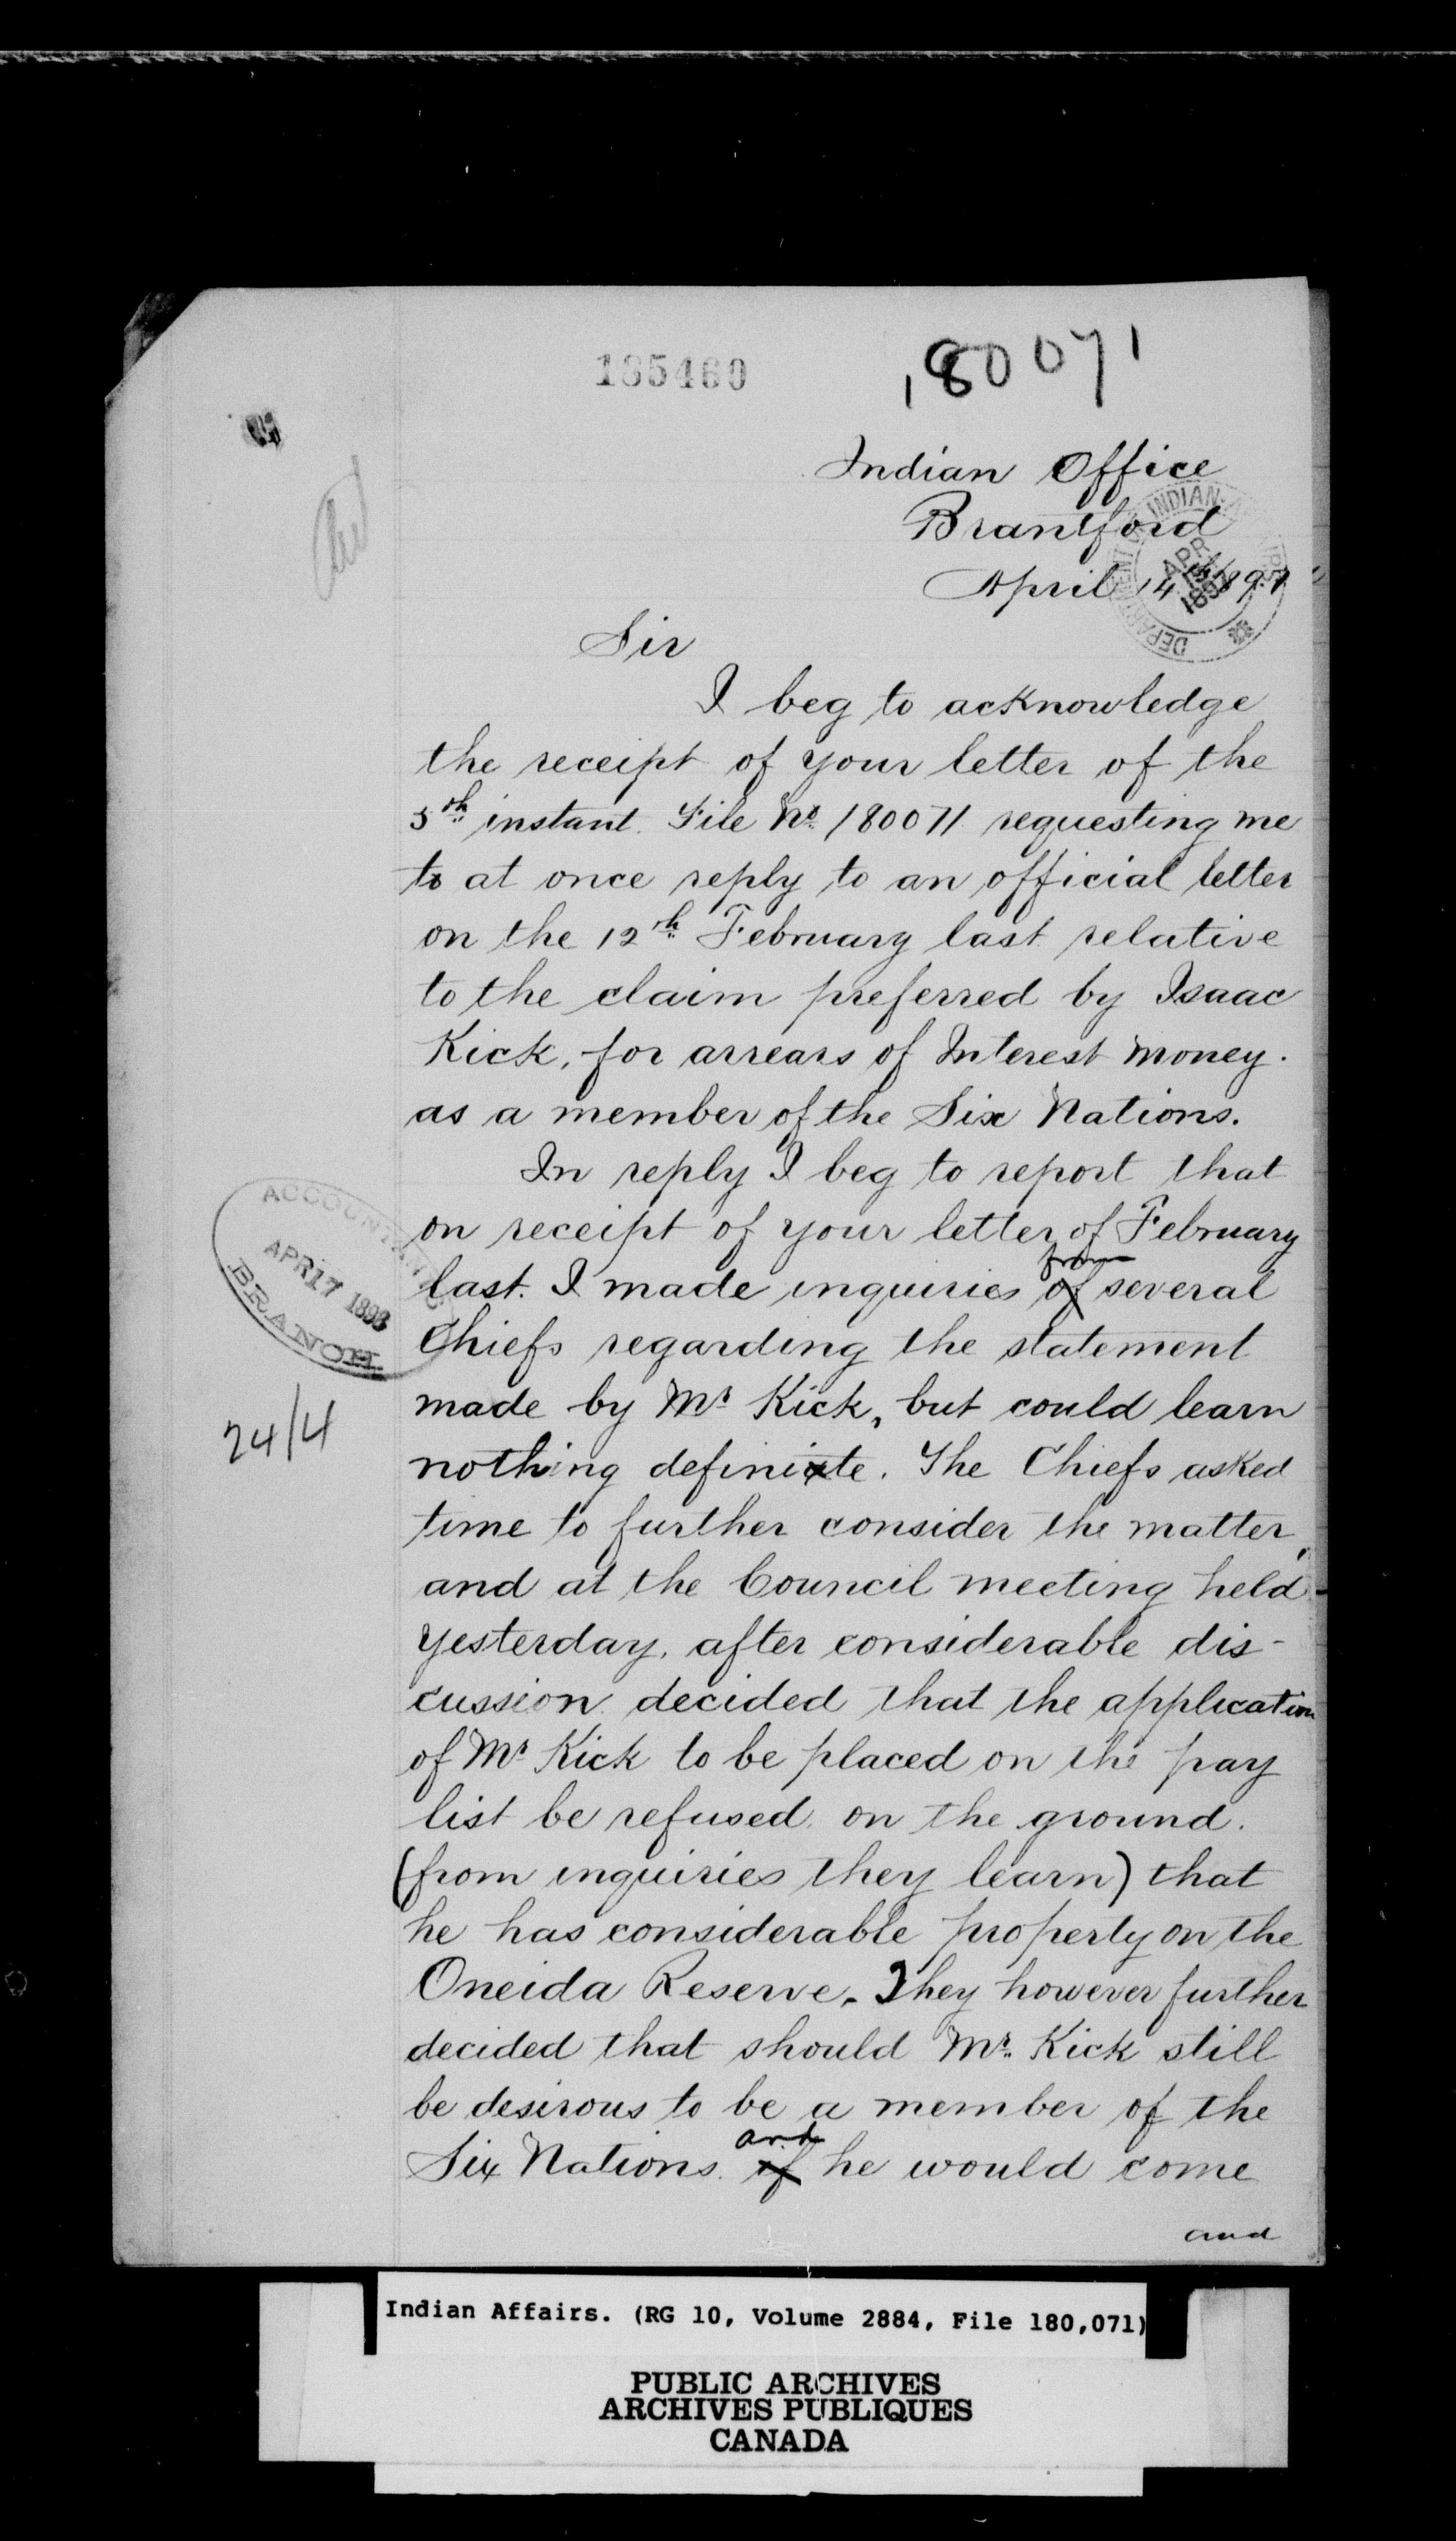 185460
180071
Indian Office
Brantford
April 14th 1897
Sir
I beg to acknowledge
the receipt of your letter of the
5th instant. File No. 180071 requesting me
to at once reply to an official letter
on the 12th February last relative
to the claim preferred by Isaac
Kick, for arrears of Interest money.
as a member of the Six Nations.
In reply I beg to report that
on receipt of your letter of February
last. I made inquiries of from several
Chiefs regarding the statement
made by Mr Kick, but could learn
nothing definite. The Chiefs asked
time to further consider the matter,
and at the Council meeting held
yesterday, after considerable dis-
cussion decided that the application
of Mr Kick to be placed on the pay
list be refused, on the ground.
(from inquiries they learn) that
he has considerable property on the
Oneida Reserve. They however further
decided that should Mr. Kick still
be desirous to be a member of the
Six Nations. if and he would come
and
DEPARTMENT INDIAN
APR
189
ACCOUNTANTS
APR 17 1893
BRANCH
24/4
Indian Affairs. (RG 10, Volume 2884, File 180,071)
PUBLIC ARCHIVES
ARCHIVES PUBLIQUES
CANADA